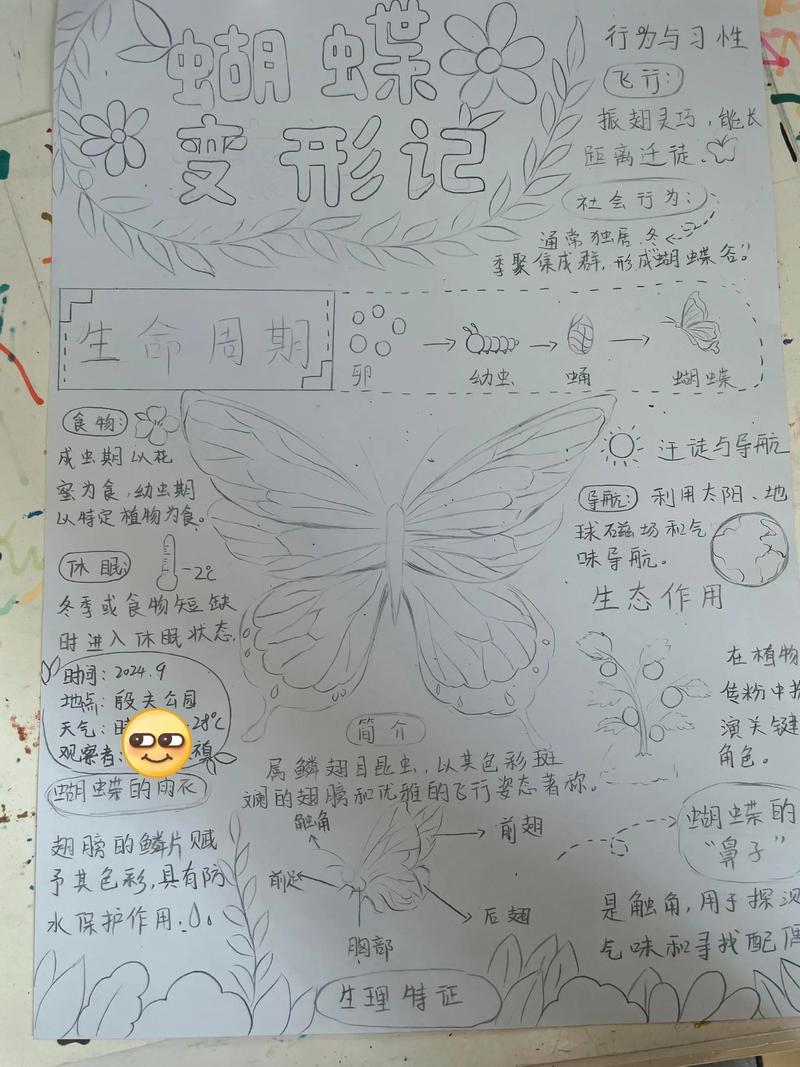 蝴蝶
变形记
行为与习性
飞行:
振翅灵巧,能长
距离迁徙.
社会行为:
通常独居.冬
季聚集成群,形成"蝴蝶谷".
生命周期
卵
幼虫
蛹
蝴蝶
食物:
成虫期以花
蜜为食,幼虫期
以特定植物为食。
休眠:
-2℃
冬季或食物短缺
时进入休眠状态.
迁徙与导航
导航:
利用太阳、地
球磁场和气
味导航。
生态作用
在植物
传粉中扮
演关键
角色。
时间:2024.9
地点:殷夫公园
天气:
28℃
观察者:
简介
属鳞翅目昆虫,以其色彩斑
斓的翅膀和优雅的飞行姿态著称。
蝴蝶的雨衣
翅膀的鳞片赋
予其色彩,具有防
水保护作用.
触角
前翅
前足
后翅
胸部
生理特征
蝴蝶的
"鼻子"
是触角,用于探测
气味和寻找配偶